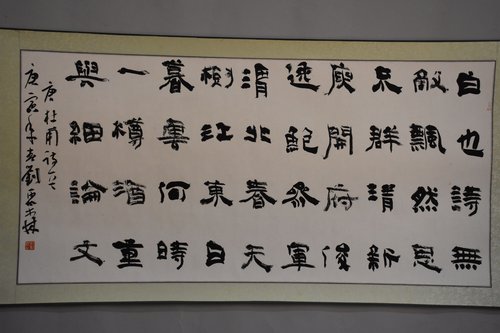 白也詩無
敵飄然思
不群清新
庾開府俊
逸鮑參軍
渭北春天
樹江東日
暮雲何時
一樽酒重
與細論文
唐杜甫詩
庚寅年劉